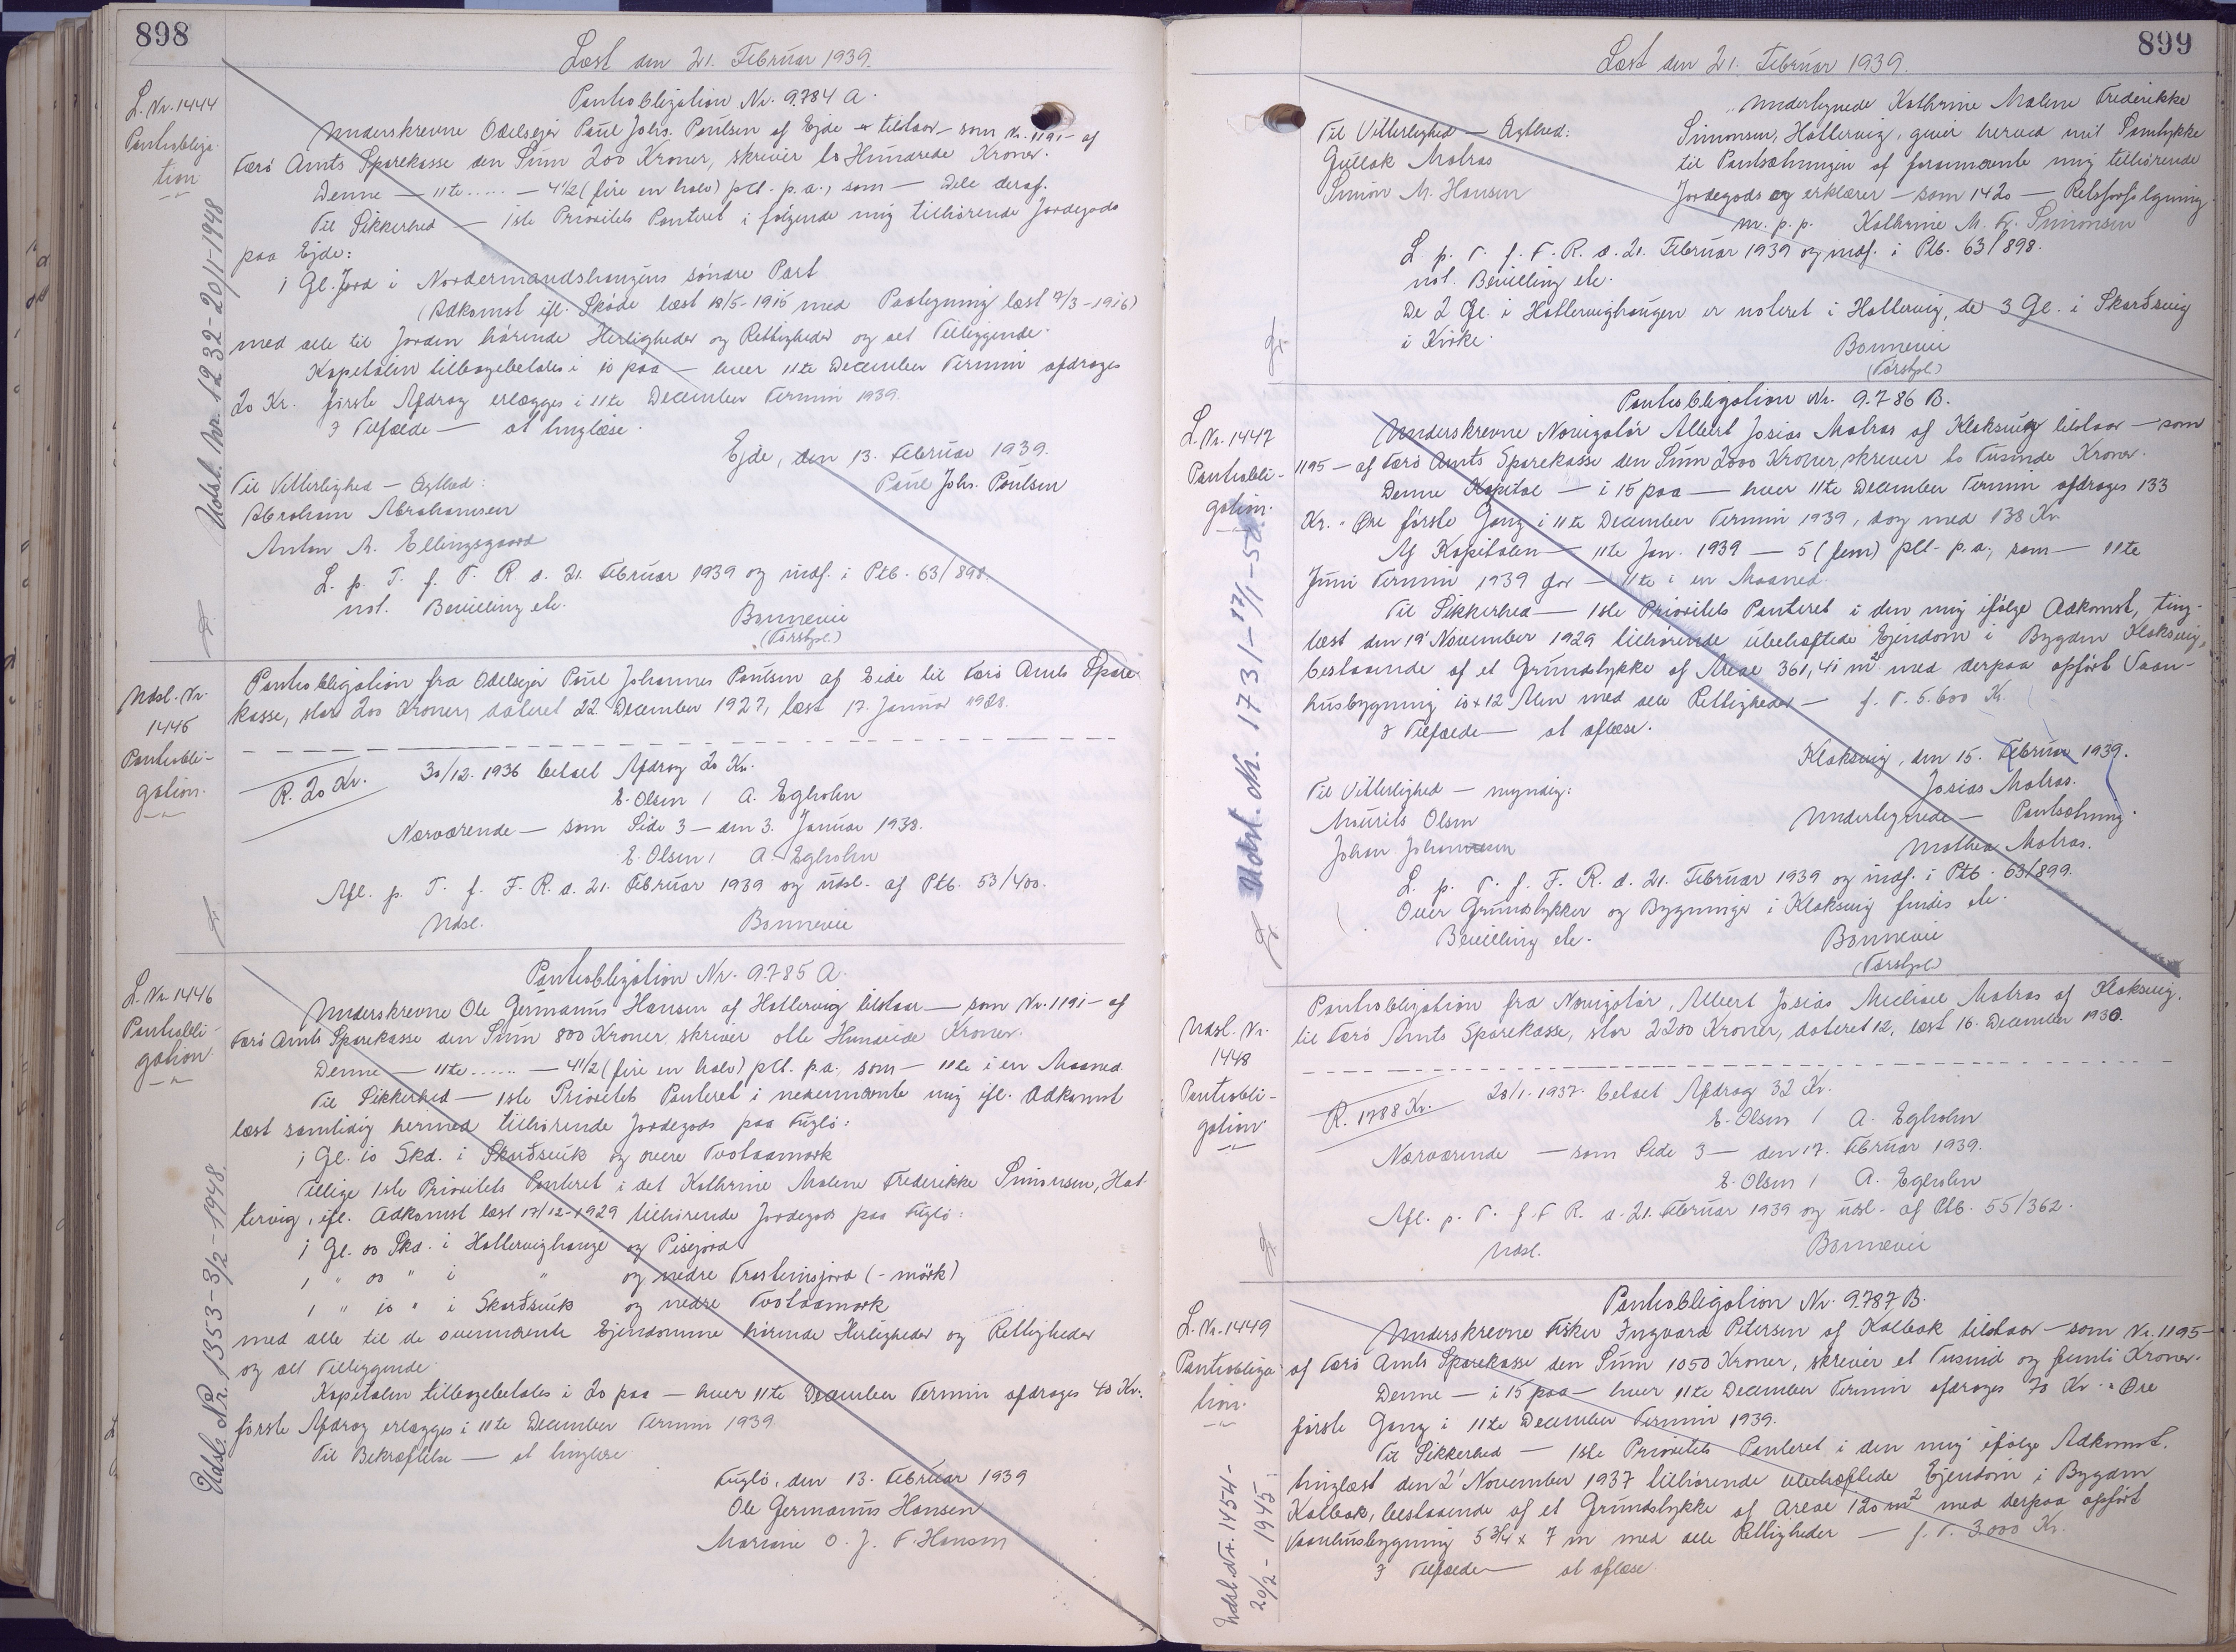 898
Læst den 21. Februar 1939.
L. Nr. 1444
Pantobliga-
tion
Udsl. Nr. 1232-20/11-1948
Pantobligation Nr. 9.784 A.
Underskrevne Odelsejer Poul Johs. Poulsen af Ejde tilstaar - som Nr. 1191 - af
Færö Amts Sparekasse den Sum 200 Kroner, skriver to Hundrede Kroner.
Denne — 11te ..... — 4 1/2 (fire en halv) pCt. p.a., som — Dele deraf.
Til Sikkerhed — 1ste Prioritets Panteret i følgende mig tilhörende Jordegods
paa Ejde:
1 Gl. Jord i Nordermandshaugens söndre Part
(Adkomst ifl. Sköde læst 18/5-1915 med Paategning læst 7/3-1916)
med alle til Jorden hörende Herligheder og Rettigheder og alt Tilliggende.
Kapitalen tilbagebetales i 10 paa — hver 11te December Termin afdrages
20 Kr. förste Afdrag erlægges i 11te December Termin 1939.
I Tilfælde — at tinglæse.
Ejde, den 13. Februar 1939.
Til Vitterlighed — Ægthed:
Poul Johs. Poulsen
Abraham Abrahamsen
Anton M. Ellingsgaard
L. p. T. f. F. R. d. 21. Februar 1939 og indf. i Ptb. 63/898.
not. Bevilling etc.
Bonnevie
(Færstpl.)
Udsl. Nr.
1445
Pantobli-
gation.
Pantobligation fra Odelsejer Poul Johannes Poulsen af Eide til Færö Amts Spare-
kasse, stor 200 Kroner, dateret 22. December 1927, læst 17. Januar 1928.
R. 20 Kr.
30/12. 1936 betalt Afdrag 20 Kr.
E. Olsen / A. Egholm
Nærværende — som Side 3 — den 3. Januar 1938.
E. Olsen / A. Egholm
Afl. p. T. f. F. R. d. 21. Februar 1939 og udsl. af Ptb. 53/400.
Udsl.
Bonnevie
L. Nr. 1446
Pantobli-
gation
Udsl. Nr. 1353-3/2-1948.
Pantobligation Nr. 9.785 A.
Underskrevne Ole Germanus Hansen af Hattervig tilstaar — som Nr. 1191 - af
Færö Amts Sparekasse den Sum 800 Kroner, skriver otte Hundrede Kroner.
Denne — 11te ...... — 4 1/2 (fire en halv) pCt. p.a., som — 11te i en Maaned.
Til Sikkerhed — 1ste Prioritets Panteret i nedennævnte mig ifl. Adkomst
læst samtidig hermed tilhörende Jordegods paa Fuglö:
1 Gl. 10 Skd. i Skarðsvik og övere Tvotaamork
Tillige 1ste Prioritets Panteret i det Kathrine Malene Frederikke Simonsen, Hat-
tervig, ifl. Adkomst læst 17/12-1929 tilhörende Jordegods paa Fuglö:
1 Gl. 00 Skd. i Hattervighauge og Pisejord
1 " 00 " i " og nedre Trosteinsjord (- mörk)
1 " 10 " i Skarðsvik og nedre Tvotaamork
med alle til de ovennævnte Ejendomme hörende Herligheder og Rettigheder
og alt Tilliggende.
Kapitalen tilbagebetales i 20 paa — hver 11te December Termin afdrages 40 Kr.
förste Afdrag erlægges i 11te December Termin 1939
Til Bekræftelse — at tinglæse
Fuglö, den 13. Februar 1939
Ole Germanus Hansen
Mariane O. J. F. Hansen
899
Læst den 21. Februar 1939.
Undertegnede Kathrine Malene Frederikke
Til Vitterlighed — Ægthed:
Simonsen, Hattervig, giver herved mit Samtykke
Gullak Matras
til Pantsætningen af forannævnte mig tilhörende
Simon M. Hansen
Jordegods og erklærer — som 1420 — Retsforfölgning.
m. p. p. Kathrine M. Fr. Simonsen
L. p. T. f. F. R. d. 21. Februar 1939 og indf. i Ptb. 63/898.
not. Bevilling etc.
De 2 Gl. i Hattervighaugen er noteret i Hattervig, de 3 Gl. i Skarðsvig
i Kirke.
Bonnevie
(Færstpl.)
L. Nr. 1447
Pantobli-
gation.
Udsl. Nr. 1731-17/1-50.
Pantobligation Nr. 9.786 B.
Underskrevne Navigatör Albert Josias Matras af Klaksvig tilstaar — som
1195 - af Færö Amts Sparekasse den Sum 2000 Kroner, skriver to Tusinde Kroner.
Denne Kapital — i 15 paa — hver 11te December Termin afdrages 133
Kr. " Øre förste Gang i 11te December Termin 1939, dog med 138 Kr.
Af Kapitalen — 11te Jan. 1939 — 5 (fem) pCt. p.a., som — 11te
Juni Termin 1939 for — 11te i en Maaned.
Til Sikkerhed — 1ste Prioritets Panteret i den mig ifölge Adkomst, ting-
læst den 19' November 1929 tilhörende ubehæftede Ejendom i Bygden Klaksvig,
bestaaende af et Grundstykke af Areal 361,41 m² med derpaa opfört Vaan-
husbygning 10 x 12 Alen med alle Rettigheder — f. T. 5.600 Kr.
I Tilfælde — at aflæse.
Klaksvig, den 15. Februar 1939.
Til Vitterlighed — myndig:
Josias Matras.
Mourits Olsen
Undertegnede — Pantsætning.
Johan Johannesen
Mathea Matras.
L. p. T. f. F. R. d. 21. Februar 1939 og indf. i Ptb. 63/899.
Over Grundstykker og Bygninger i Klaksvig findes etc.
Bevilling etc.
Bonnevie
(Færstpl.)
Udsl. Nr.
1448
Pantobli-
gation
Pantobligation fra Navigatör, Albert Josias Michael Matras af Klaksvig,
til Færö Amts Sparekasse, stor 2200 Kroner, dateret 12, læst 16. December 1930.
R. 1788 Kr.
20/1. 1937. betalt Afdrag 32 Kr.
E. Olsen / A. Egholm
Nærværende — som Side 3 — den 17. Februar 1939.
E. Olsen / A. Egholm
Afl. p. T. f. F. R. d. 21. Februar 1939 og udsl. af Ptb. 55/362.
Udsl.
Bonnevie
L. Nr. 1449
Pantobliga-
tion.
Udsl. Nr. 1454-
20/2-1945.
Pantobligation Nr. 9.787 B.
Underskrevne Fisker Ingvard Petersen af Kalbak tilstaar — som Nr. 1195 -
af Færö Amts Sparekasse den Sum 1050 Kroner, skriver et Tusind og femti Kroner.
Denne — i 15 paa — hver 11te December Termin afdrages 70 Kr. " Øre
förste Gang i 11te December Termin 1939.
Til Sikkerhed — 1ste Prioritets Panteret i den mig ifölge Adkomst.
tinglæst den 2' November 1937 tilhörende ubehæftede Ejendom i Bygden
Kalbak, bestaaende af et Grundstykke af Areal 120 m² med derpaa opfört
Vaanhusbygning 5 3/4 x 7 m med alle Rettigheder — f. T. 3.000 Kr.
I Tilfælde — at aflæse.